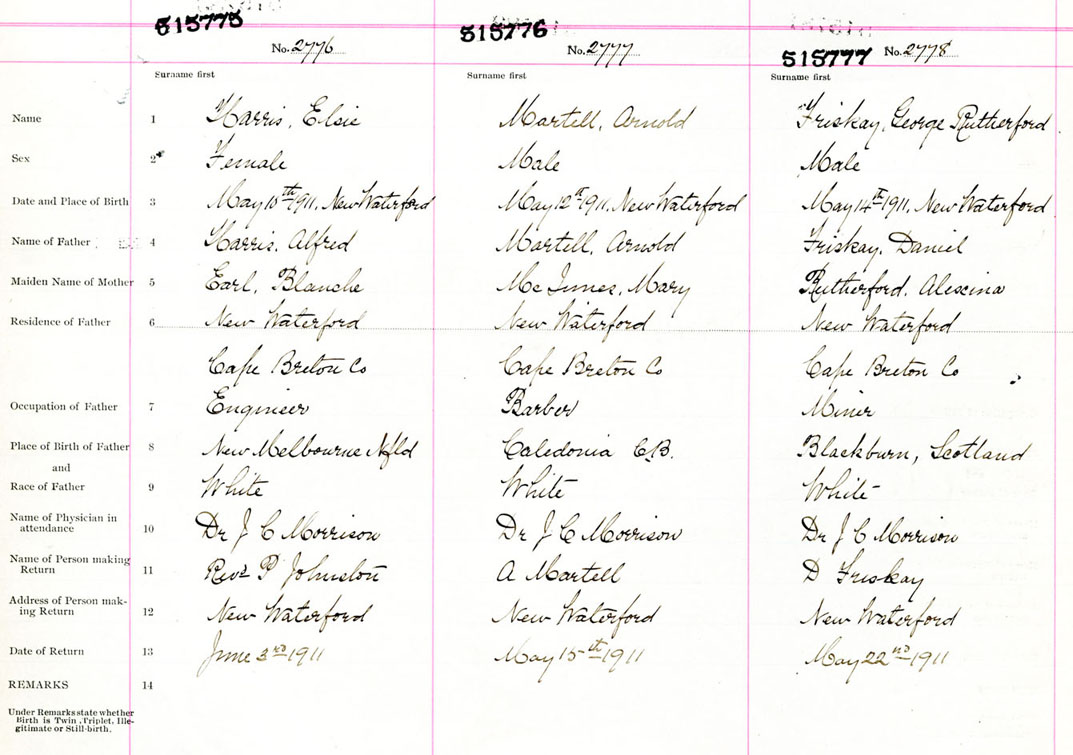 515775 515776 515777
No. 2776 No. 2777 No. 2778
Surname first Surname first Surname first
Name 1 Harris, Elsie Martell, Arnold Friskay, George Rutherford
Sex 2 Female Male Male
Date and Place of Birth 3 May 10th 1911, New Waterford May 12th 1911, New Waterford May 14th 1911, New Waterford
Name of Father 4 Harris, Alfred Martell, Arnold Friskay, Daniel
Maiden Name of Mother 5 Earl, Blanche McInnes, Mary Rutherford, Alescina
Residence of Father 6 New Waterford New Waterford New Waterford
Cape Breton Co Cape Breton Co Cape Breton Co
Occupation of Father 7 Engineer Barber Miner
Place of Birth of Father 8 New Melbourne Nfld Caledonia C.B. Blackburn, Scotland
and
Race of Father 9 White White White
Name of Physician in
attendance 10 Dr J C Morrison Dr J C Morrison Dr J C Morrison
Name of Person making
Return 11 Revd P Johnston A Martell D Friskay
Address of Person mak-
ing Return 12 New Waterford New Waterford New Waterford
Date of Return 13 June 3rd 1911 May 15th 1911 May 22nd 1911
REMARKS 14
Under Remarks state whether
Birth is Twin, Triplet, Ille-
gitimate or Still-birth.